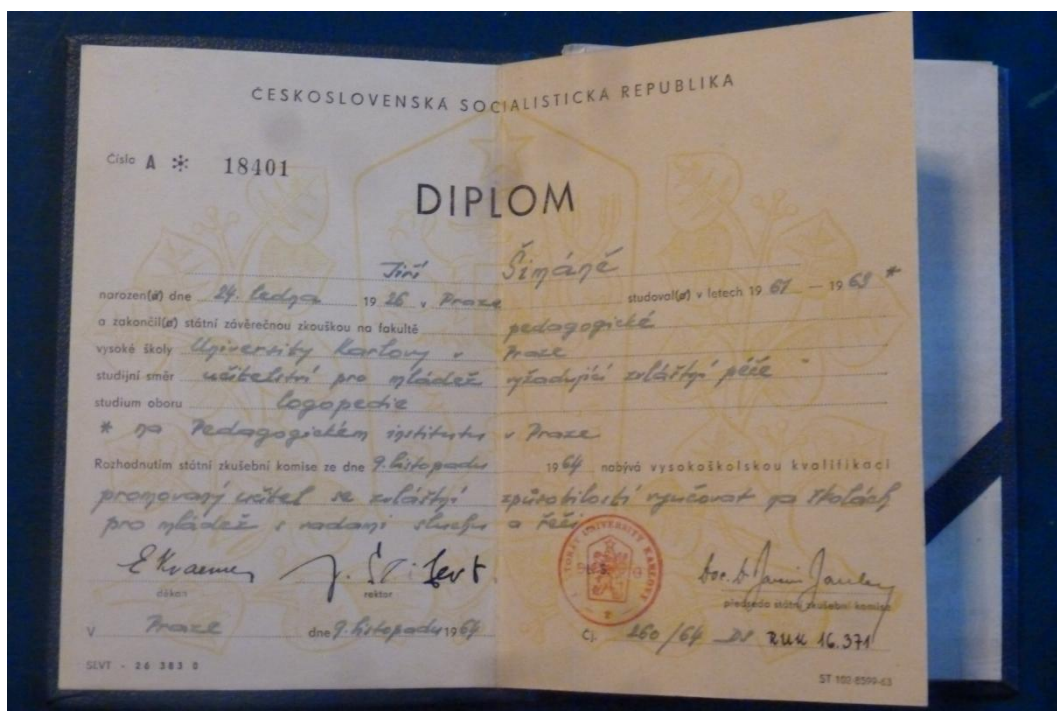 ČESKOSLOVENSKÁ SOCIALISTICKÁ REPUBLIKA
Číslo A * 18401
DIPLOM
Jiří Šimáně
narozen(á) dne 24. ledna 1926 v Praze studoval(a) v letech 1961 — 1963 *
a zakončil(a) státní závěrečnou zkouškou na fakultě pedagogické
vysoké školy University Karlovy v Praze
studijní směr učitelství pro mládež vyžadující zvláštní péče
studium oboru logopedie
* na Pedagogickém institutu v Praze
Rozhodnutím státní zkušební komise ze dne 9. listopadu 1964 nabývá vysokoškolskou kvalifikaci
promovaný učitel se zvláštní způsobilostí vyučovat na školách
pro mládež s vadami sluchu a řeči
děkan rektor předseda státní zkušební komise
V Praze dne 9. listopadu 1964 Čj. 260/64 RUK 16.371
SEVT - 26 383 0 ST 102-8599-63